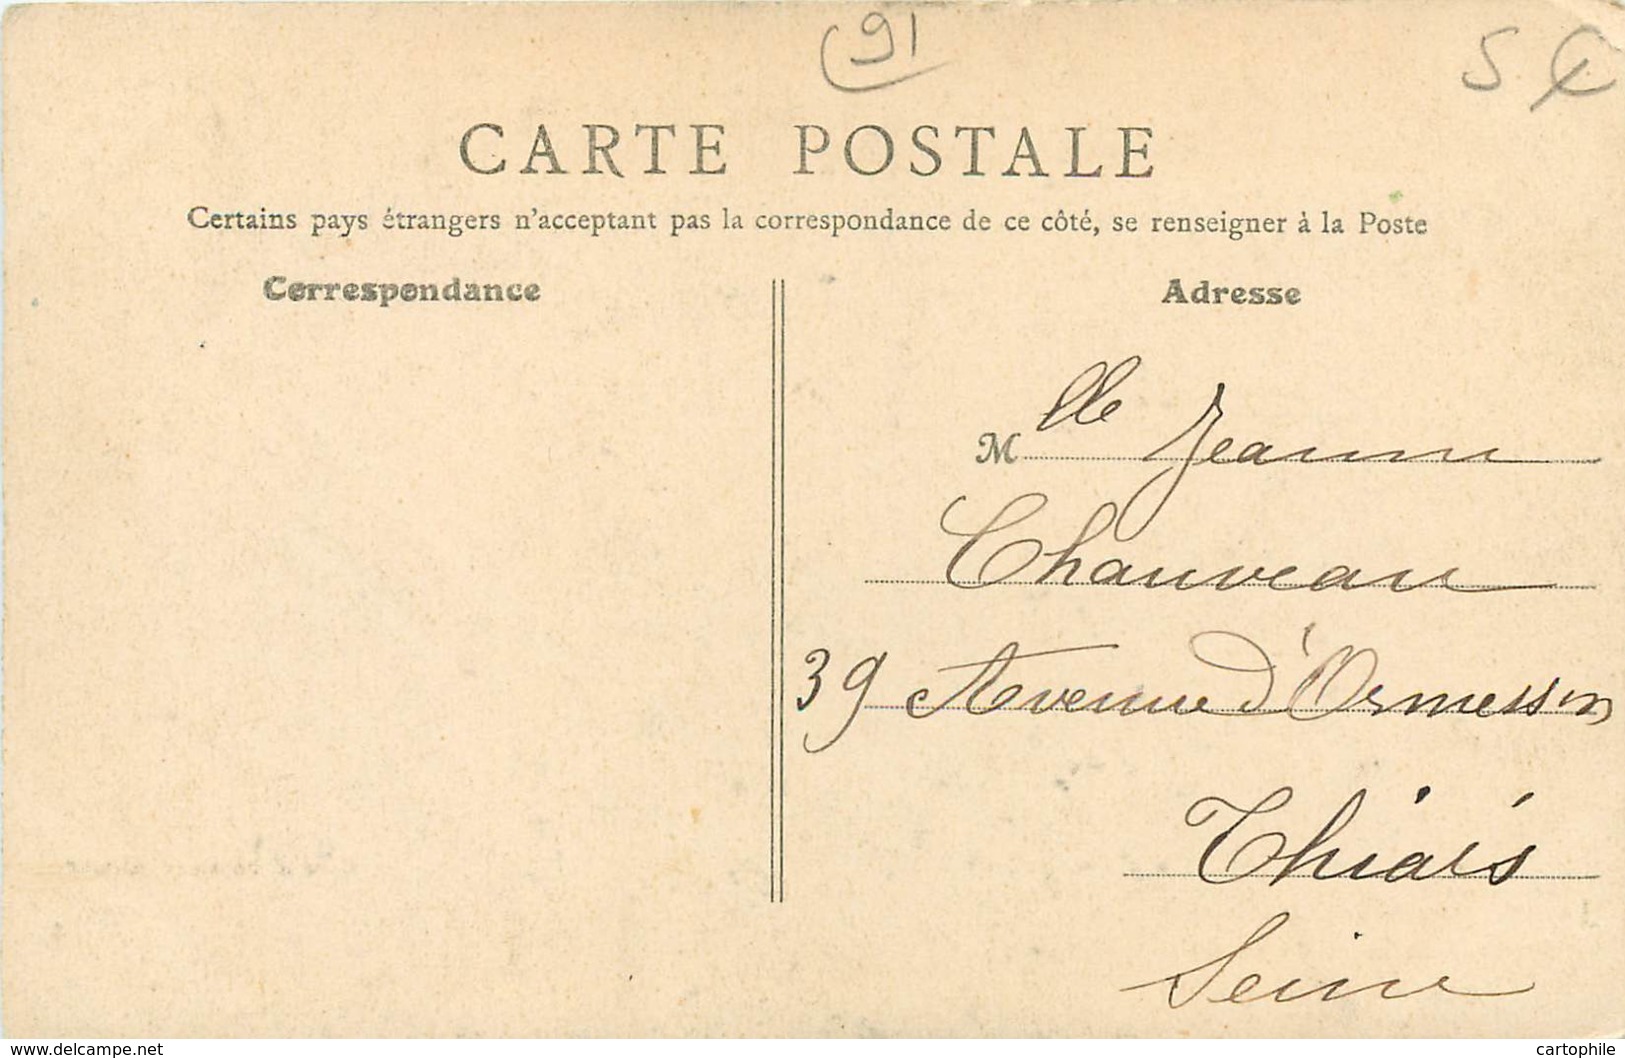 91
5 €
CARTE POSTALE
Certains pays étrangers n'acceptant pas la correspondance de ce côté, se renseigner à la Poste
Correspondance
Adresse
Mlle Jeanne
Chauveau
39 Avenue d'Ormesson
Thiais
Seine
www.delcampe.net
cartophile